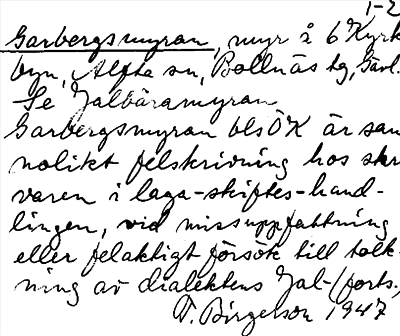 1-2
Garbergsmyran, myr å 6 Kyrk
byn, Alfta sn, Bollnäs tg, Gävl.
Se Jalbäramyran
Garbergsmyran bls ÖK är san
nolikt felskrivning hos skri
varen i laga-skiftes-hand-
lingen, vid missuppfattning
eller felaktigt försök till tolk-
ning av dialektens Jal- (forts.)
T. Birgerson 1947